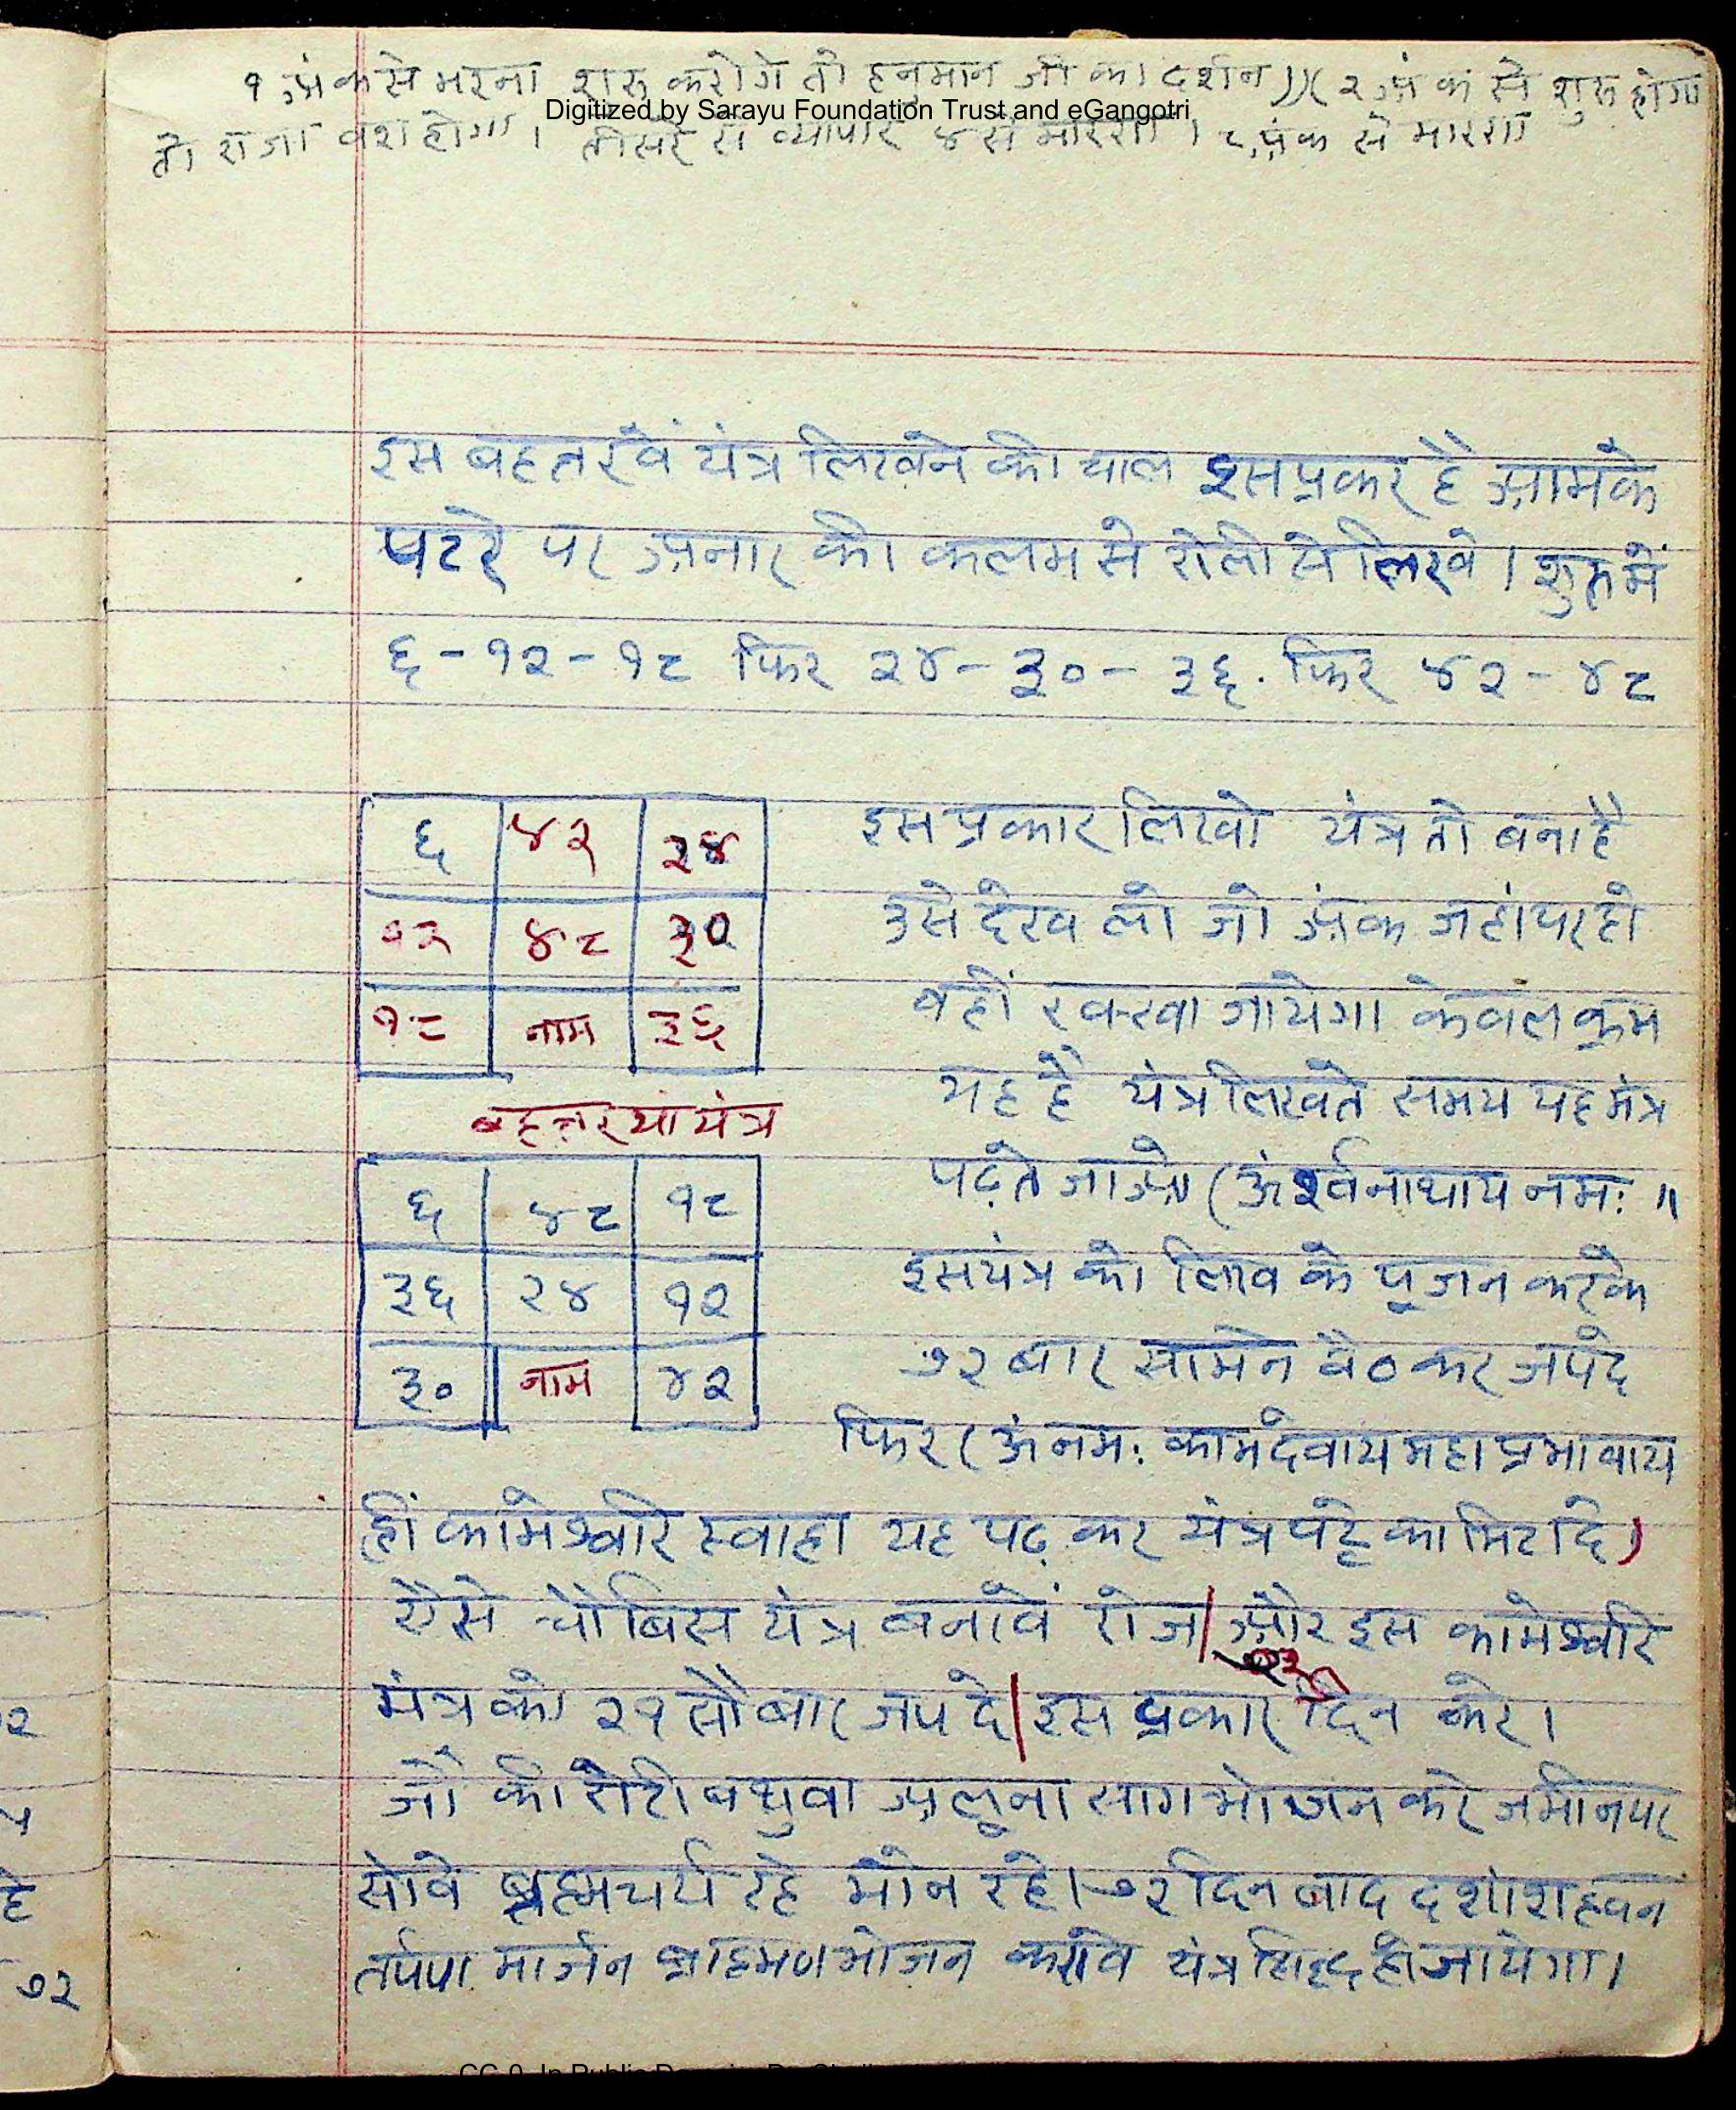 १ अंक से भरना शुरू करोगे तो हनुमान जी का दर्शन))(२ अंक से शुरू होगा
Digitized by Sarayu Foundation Trust and eGangotri
तो राजा वश होगा। तीसरे से व्यापार ४ से मारण। ८ अंक से मारण
इस बहतरवें यंत्र लिखने की चाल इस प्रकर है आमके
पटरे पर अनार की कलम से रोली से लिखे। शुरू में
६ - १२ - १८ फिर २४ - ३० - ३६. फिर ४२ - ४८
६ ४२ २४
१२ ४८ ३०
१८ नाम ३६
बहत्तरयां यंत्र
६ ४८ १८
३६ २४ १२
३० नाम ४२
इस प्रकार लिखो यंत्र तो बना है
उसे देख लो जो अंक जहां पर हो
वहीं रक्खा जायेगा केवल क्रम
यह है यंत्र लिखते समय यह मंत्र
पढ़ते जाओ (ॐ नाथाय नमः॥
इस यंत्र को लिख के पूजन करके
७२ बार सामने बैठ कर जपदे
फिर (ॐ नमः कामदेवाय महा प्रभावाय
ह्रीं कामेश्वरि स्वाहा यह पढ़ कर यंत्र पट्टे का मिटादे)
ऐसे चौबिस यंत्र बनावें रोज। और इस कामेश्वरि
मंत्र को २१ सौ बार जप दे। इस प्रकार दिन करे।
जौ की रोटी बथुवा अलूना साग भोजन करे जमीन पर
सोवे ब्रह्मचर्य रहे मौन रहे। ७२ दिन बाद दशांश हवन
तर्पण मार्जन ब्राह्मण भोजन करावे यंत्र सिद्ध हो जायेगा।
२
हे
७२